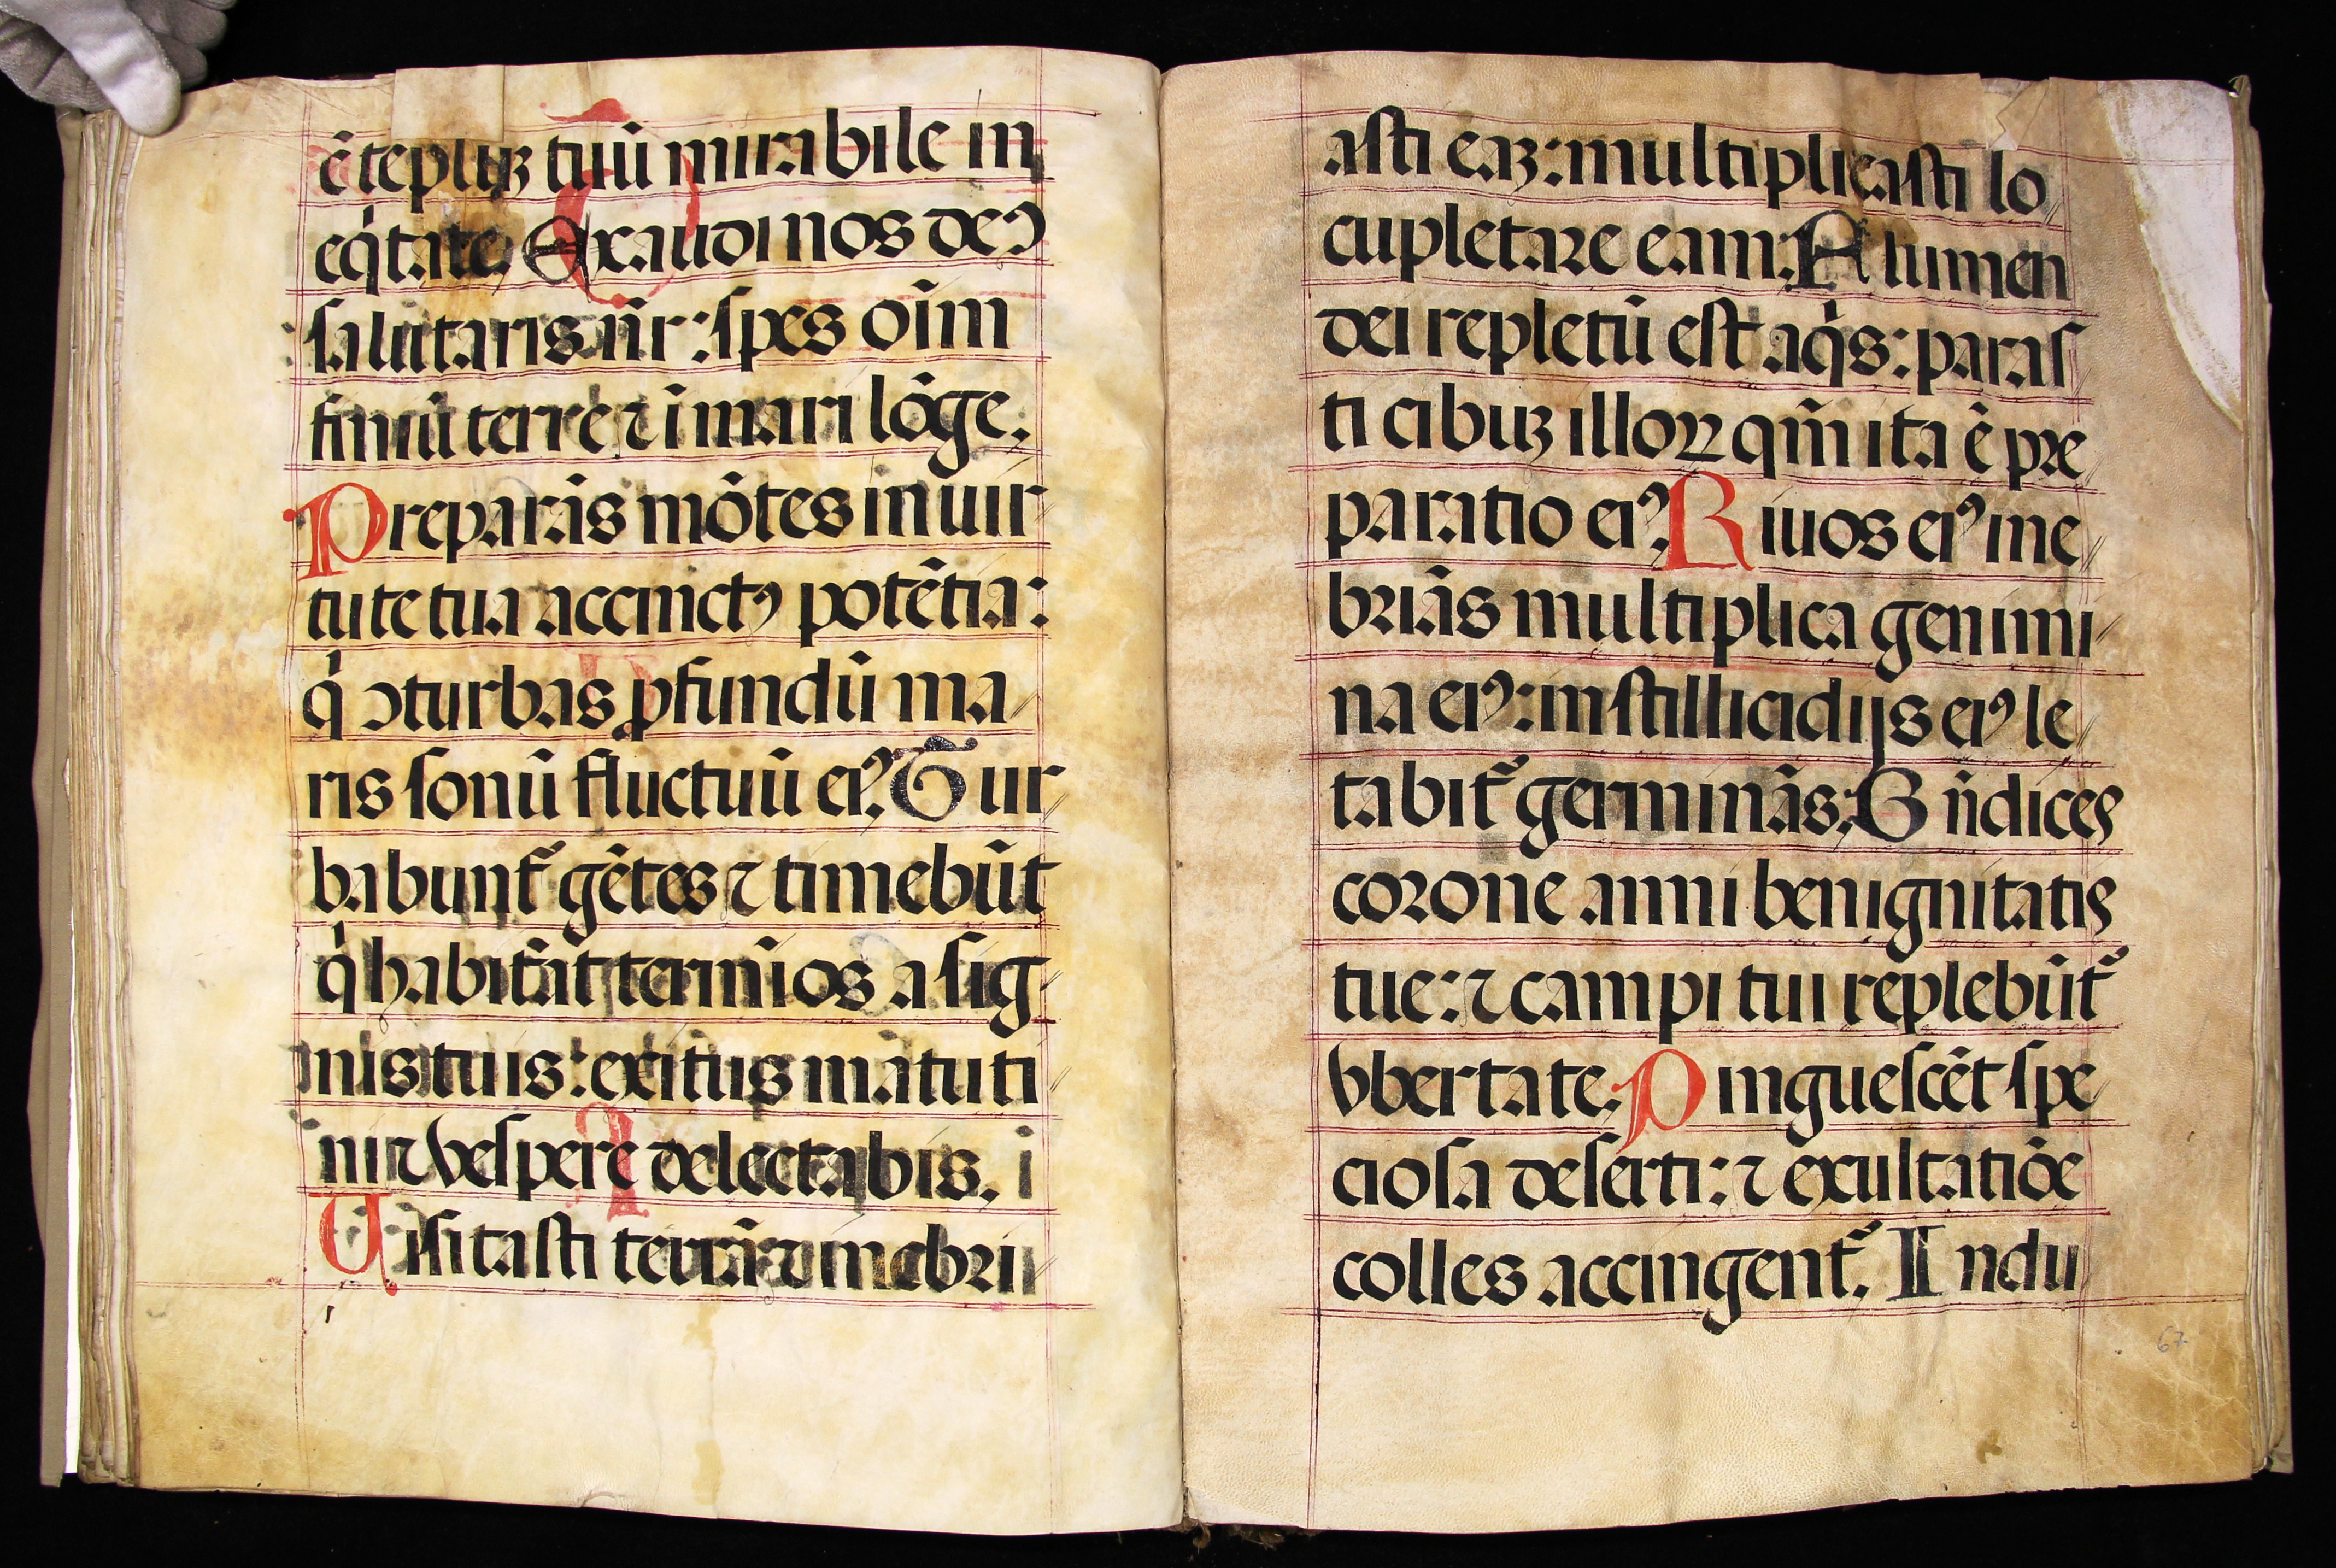 ē tēpluꝫ tuū mirabile in
eq̇tate. Exaudi nos deꝰ
salutaris nr̄: spes oīm
finiū terre ⁊ ī mari lōge.
Preparās mōtes in uir
tute tua accinctꝰ potētia:
q̇ ↄturbas ꝓfundū ma
ris sonū fluctuū eiꝰ. Tur
babunt᷑ gētes ⁊ timebūt
q̇ habitāt termīos a sig
nis tuis: exitus matuti
ni ⁊ vespere delectabis. i
Uisitasti terrā ⁊ inebri
asti eaꝫ: multiplicasti lo
cupletare eam. Flumen
dei repletū est aq̇s: paras
ti cibuꝫ illoꝝ qm̄ ita ē pre
paratio eiꝰ. Riuos eiꝰ ine
briās multiplica genimi
na eiꝰ: in stillicidijs eiꝰ le
tabit᷑ germinās. Bn̄dices
corone anni benignitatis
tue: ⁊ campi tui replebūt᷑
vbertate. Pinguescēt spe
ciosa deserti: ⁊ exultatiōe
colles accingent᷑. Indu
67